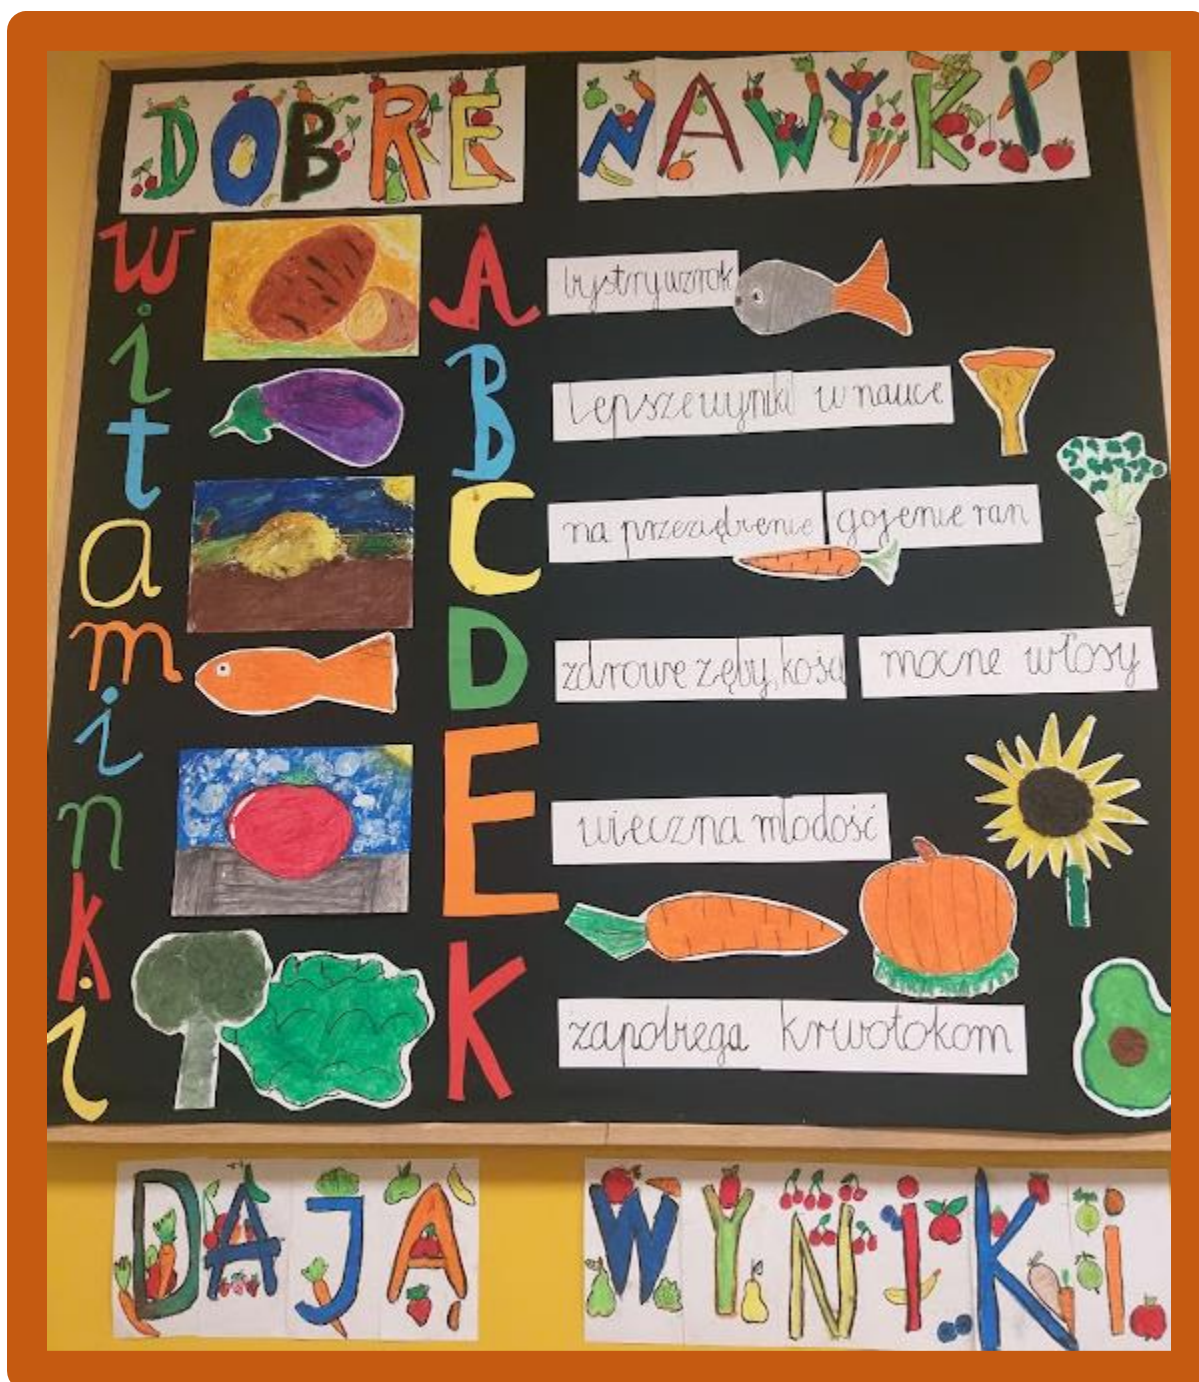 DOBRE NAWYKi
witaminki
A bystry wzrok
B lepsze wyniki w nauce
C na przeziębienie gojenie ran
D zdrowe zęby, kości mocne włosy
E wieczna młodość
K zapobiega krwotokom
DAJĄ WYNiKi